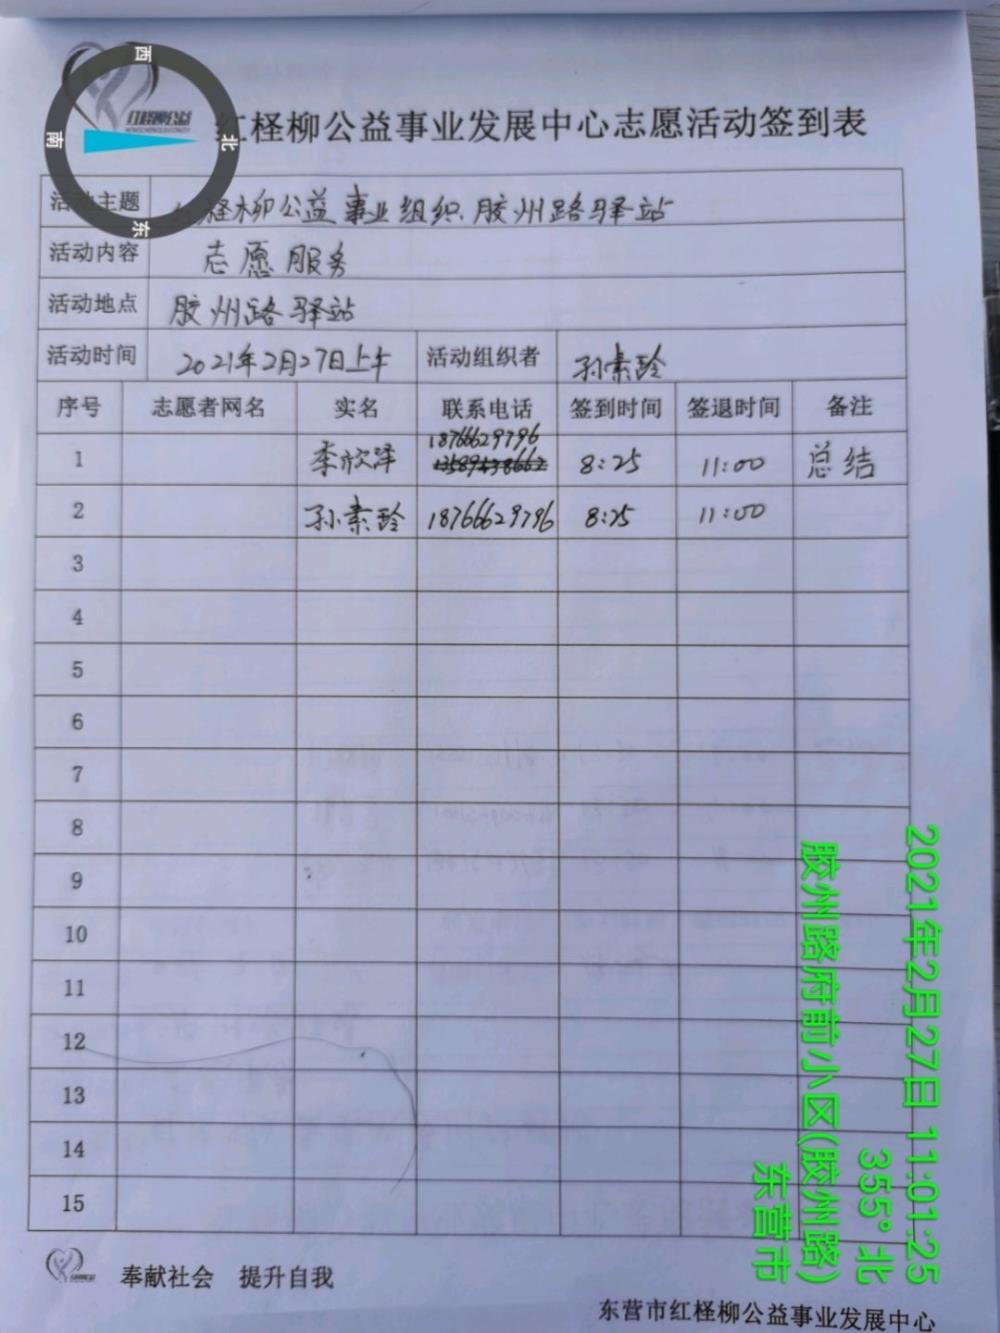 西
南
北
东
红柽柳公益
红柽柳公益事业发展中心志愿活动签到表
活动主题 红柽柳公益事业组织.胶州路驿站
活动内容 志愿服务
活动地点 胶州路驿站
活动时间 2021年2月27日上午 活动组织者 孙素玲
序号 志愿者网名 实名 联系电话 签到时间 签退时间 备注
1 李欣萍 18766629796 8:25 11:00 总结
2 孙素玲 18766629796 8:25 11:00
3
4
5
6
7
8
9
10
11
12
13
14
15
奉献社会 提升自我
东营市红柽柳公益事业发展中心
2021年2月27日 11:01:25
355° 北
胶州路府前小区(胶州路)
东营市